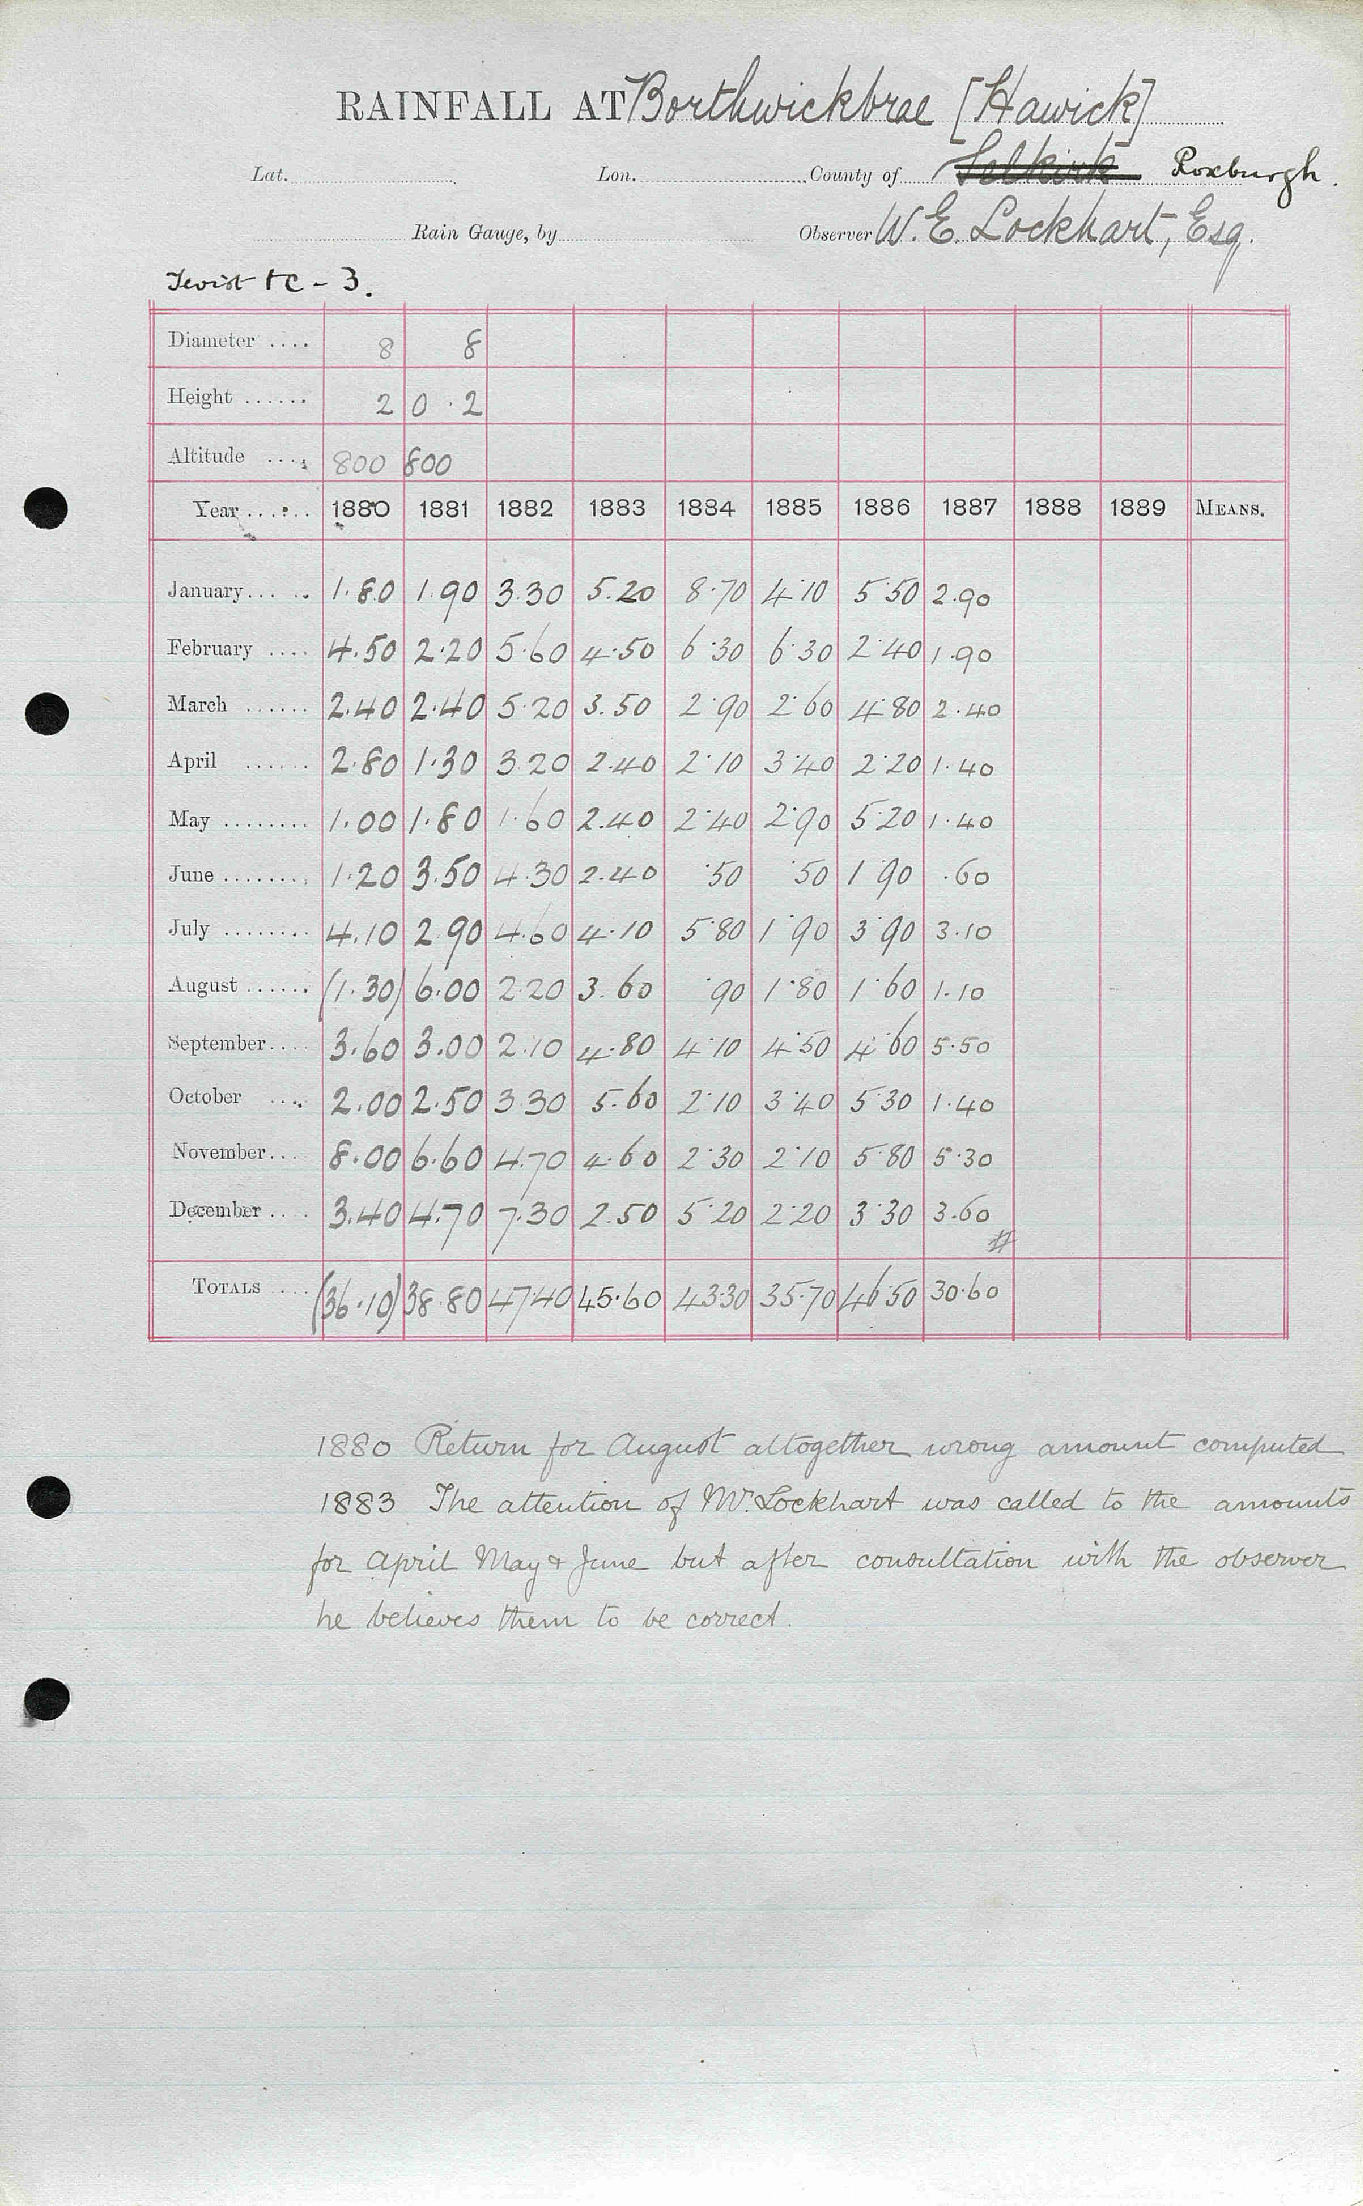 RAINFALL AT Borthwickbrae [Hawick]
Lat. Lon. County of Selkirk Roxburgh.
Rain Gauge, by Observer W. E. Lockhart, Esq.
3.
Diameter .... 8 8
Height ...... 2 0.2
Altitude .... 800 800
Year ...... 1880 1881 1882 1883 1884 1885 1886 1887 1888 1889 MEANS.
January ..... 1.80 1.90 3.30 5.20 8.70 4.10 5.50 2.90
February .... 4.50 2.20 5.60 4.50 6.30 6.30 2.40 1.90
March ...... 2.40 2.40 5.20 3.50 2.90 2.60 4.80 2.40
April ...... 2.80 1.30 3.20 2.40 2.10 3.40 2.20 1.40
May ........ 1.00 1.80 1.60 2.40 2.40 2.90 5.20 1.40
June ........ 1.20 3.50 4.30 2.40 .50 .50 1.90 .60
July ........ 4.10 2.90 4.60 4.10 5.80 1.90 3.90 3.10
August ...... (1.30) 6.00 2.20 3.60 .90 1.80 1.60 1.10
September.... 3.60 3.00 2.10 4.80 4.10 4.50 4.60 5.50
October .... 2.00 2.50 3.30 5.60 2.10 3.40 5.30 1.40
November.... 8.00 6.60 4.70 4.60 2.30 2.10 5.80 5.30
December .... 3.40 4.70 7.30 2.50 5.20 2.20 3.30 3.60
TOTALS .... (36.10) 38.80 47.40 45.60 43.30 35.70 46.50 30.60
1880 Return for August altogether wrong amount computed
1883 The attention of Mr. Lockhart was called to the amounts
for April May & June but after consultation with the observer
he believes them to be correct.